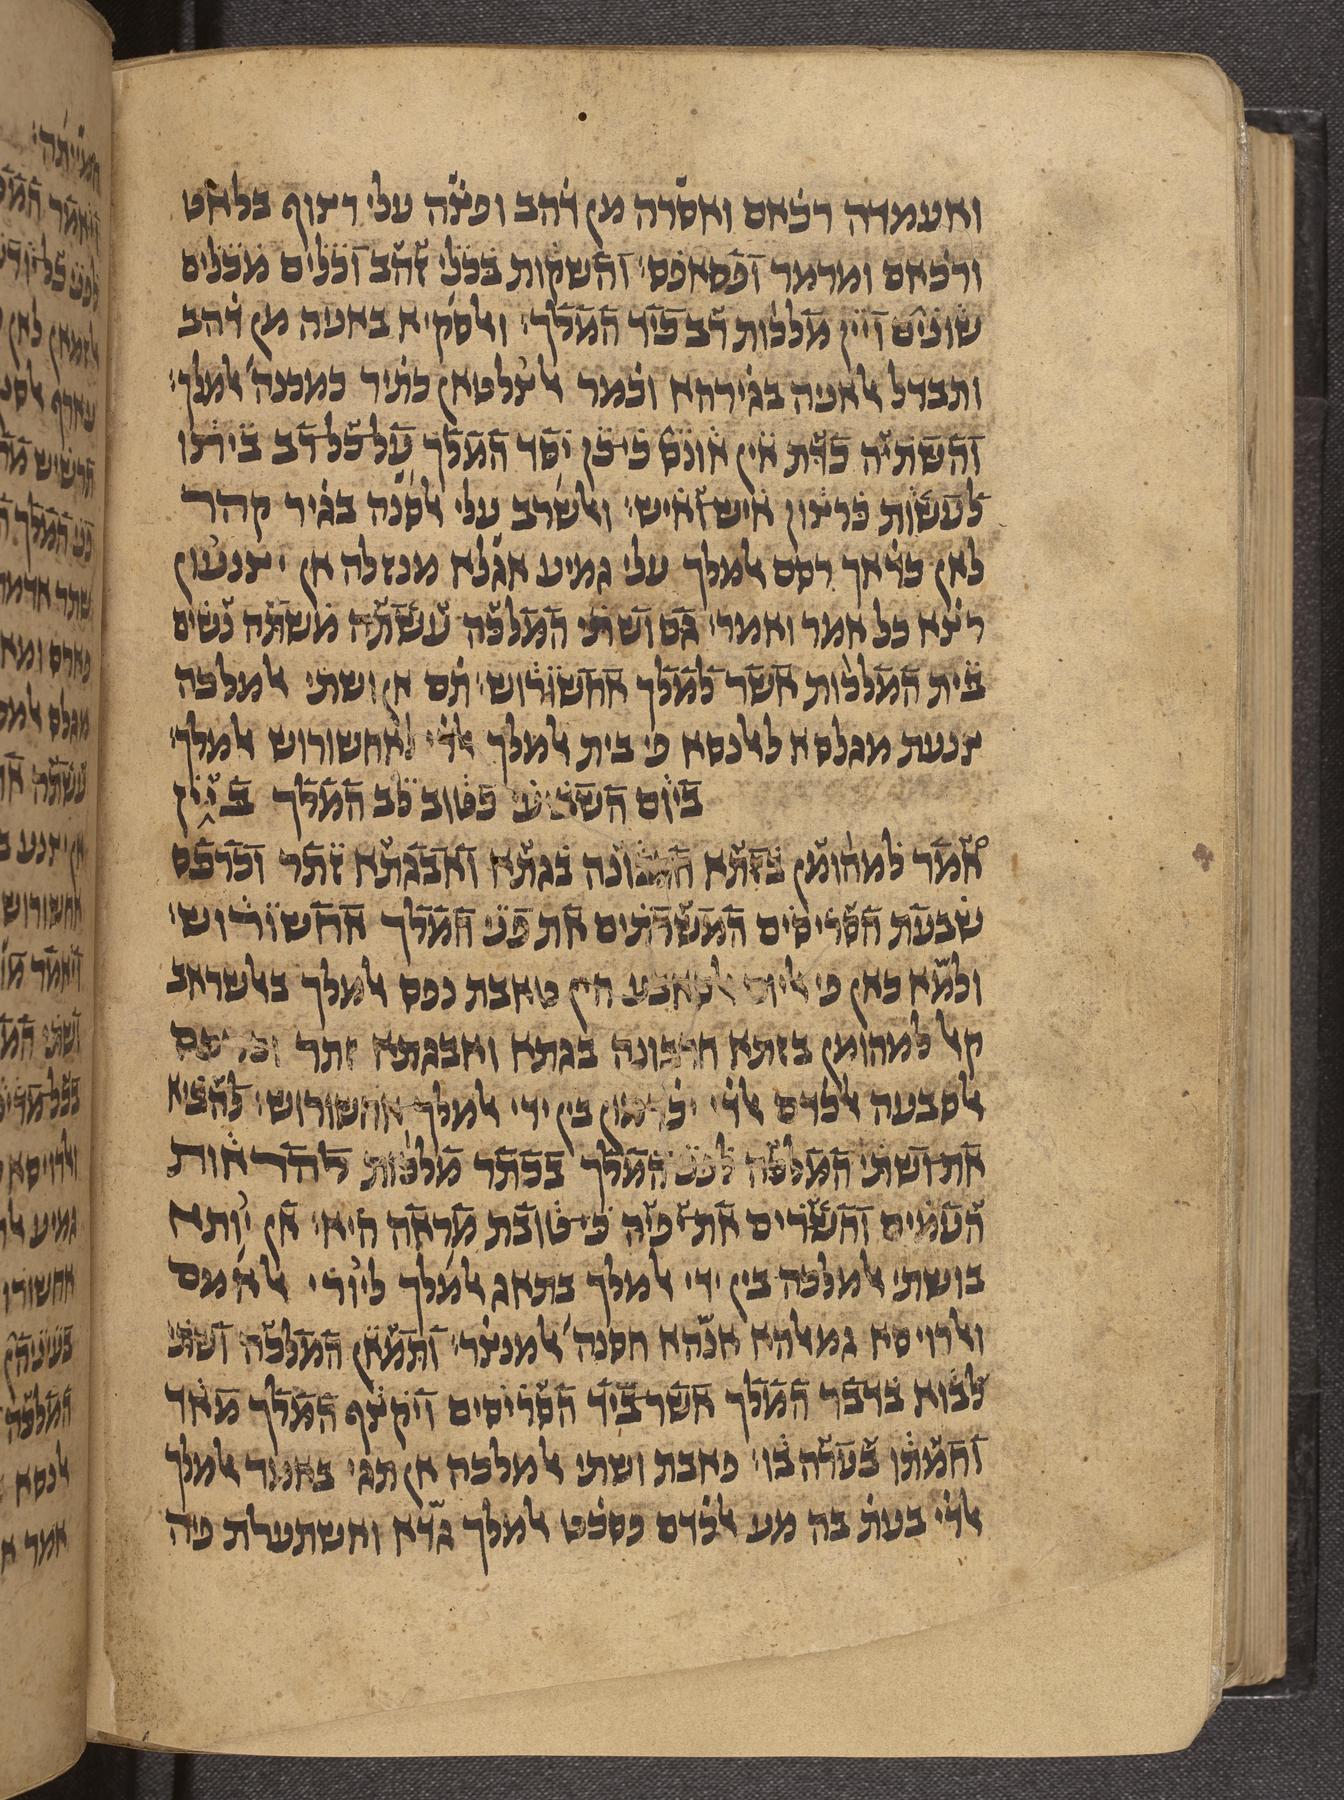 ואעמדה רכ̇אם ואסרה מן ד̇הב ופצ̇ה עלי רצוף בלאט
ורכ̇אם ומרמר ופסאפס׃ והשקות בכלי זהב וכלים מכלים
שונים ויין מלכות רב כיד המלך׃ ואלסקיא באניה מן ד̇הב
ותבדל אלאניה בגירהא וכ̇מר אלצלטאן כתיר כמכנה אלמלך׃
והשתיה כדת אין אונס כי כן יסד המלך על כל רב ביתו
לעשות כרצון איש ואיש׃ ואלשרב עלי אלסנה בגיר קהר
לאן כד̇אך רסם אלמלך עלי גמיע אגלא מנזלה אן יצנעון
רצ̇א כל אמר ואמרי׃ גם ושתי המלכה עשתה משתה נשים
בית המלכות אשר למלך אחשורוש׃ תם אן ושתי אלמלכה
צנעת מגלסא ללנסא פי בית אלמלך אלד̇י לאחשורוש אלמלך׃
ביום השביעי כטוב לב המלך ביין
אמר למהומן בזתא חרבונה בגתא ואבגתא זתר וכרכס
שבעת הסריסים המשרתים את פני המלך אחשורוש׃
ולמא כאן פי אליום אלסאבע חין טאבת נפס אלמלך באלשראב
קאל למהומן בזתא חרבונה בגתא ואבגתא זתר וכרכס
אלסבעה אלכ̇דם אלד̇י יכ̇דמון בין ידי אלמלך אחשורוש׃ להביא
את ושתי המלכה לפני המלך בכתר מלכות להראות
העמים והשרים את יפיה כי טובת מראה היא׃ אן יותא
בושתי אלמלכה בין ידי אלמלך בתאג אלמלך ליורי אלאמם
ואלרויסא גמאלהא אנהא חסנה אלמנצ̇ר׃ ותמאן המלכה ושתי
לבוא בדבר המלך אשר ביד הסריסים ויקצף המלך מאד
וחמתו בערה בו׃ פאבת ושתי אלמלכה אן תגי באמר אלמלך
אלד̇י בעת בה מע אלכ̇דם פסכ̇ט אלמלך גדא ואשתעלת פיה